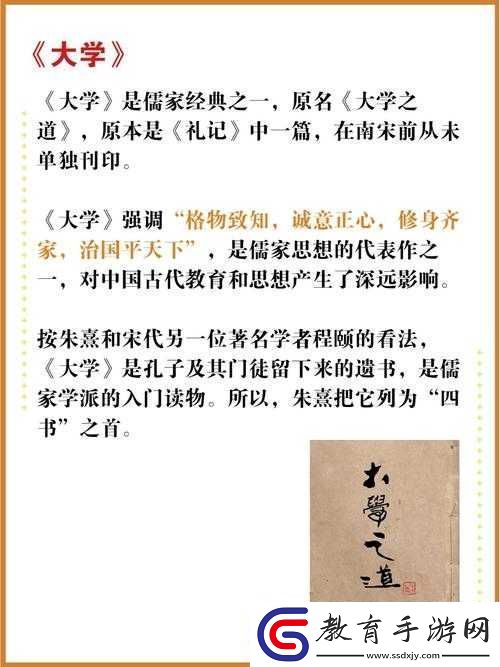 《大学》
《大学》是儒家经典之一，原名《大学之
道》，原本是《礼记》中一篇，在南宋前从未
单独刊印。
《大学》强调“格物致知，诚意正心，修身齐
家，治国平天下”，是儒家思想的代表作之
一，对中国古代教育和思想产生了深远影响。
按朱熹和宋代另一位著名学者程颐的看法，
《大学》是孔子及其门徒留下来的遗书，是儒
家学派的入门读物。所以，朱熹把它列为“四
书”之首。
大學之道
教育手游网
www.ssdxjy.com